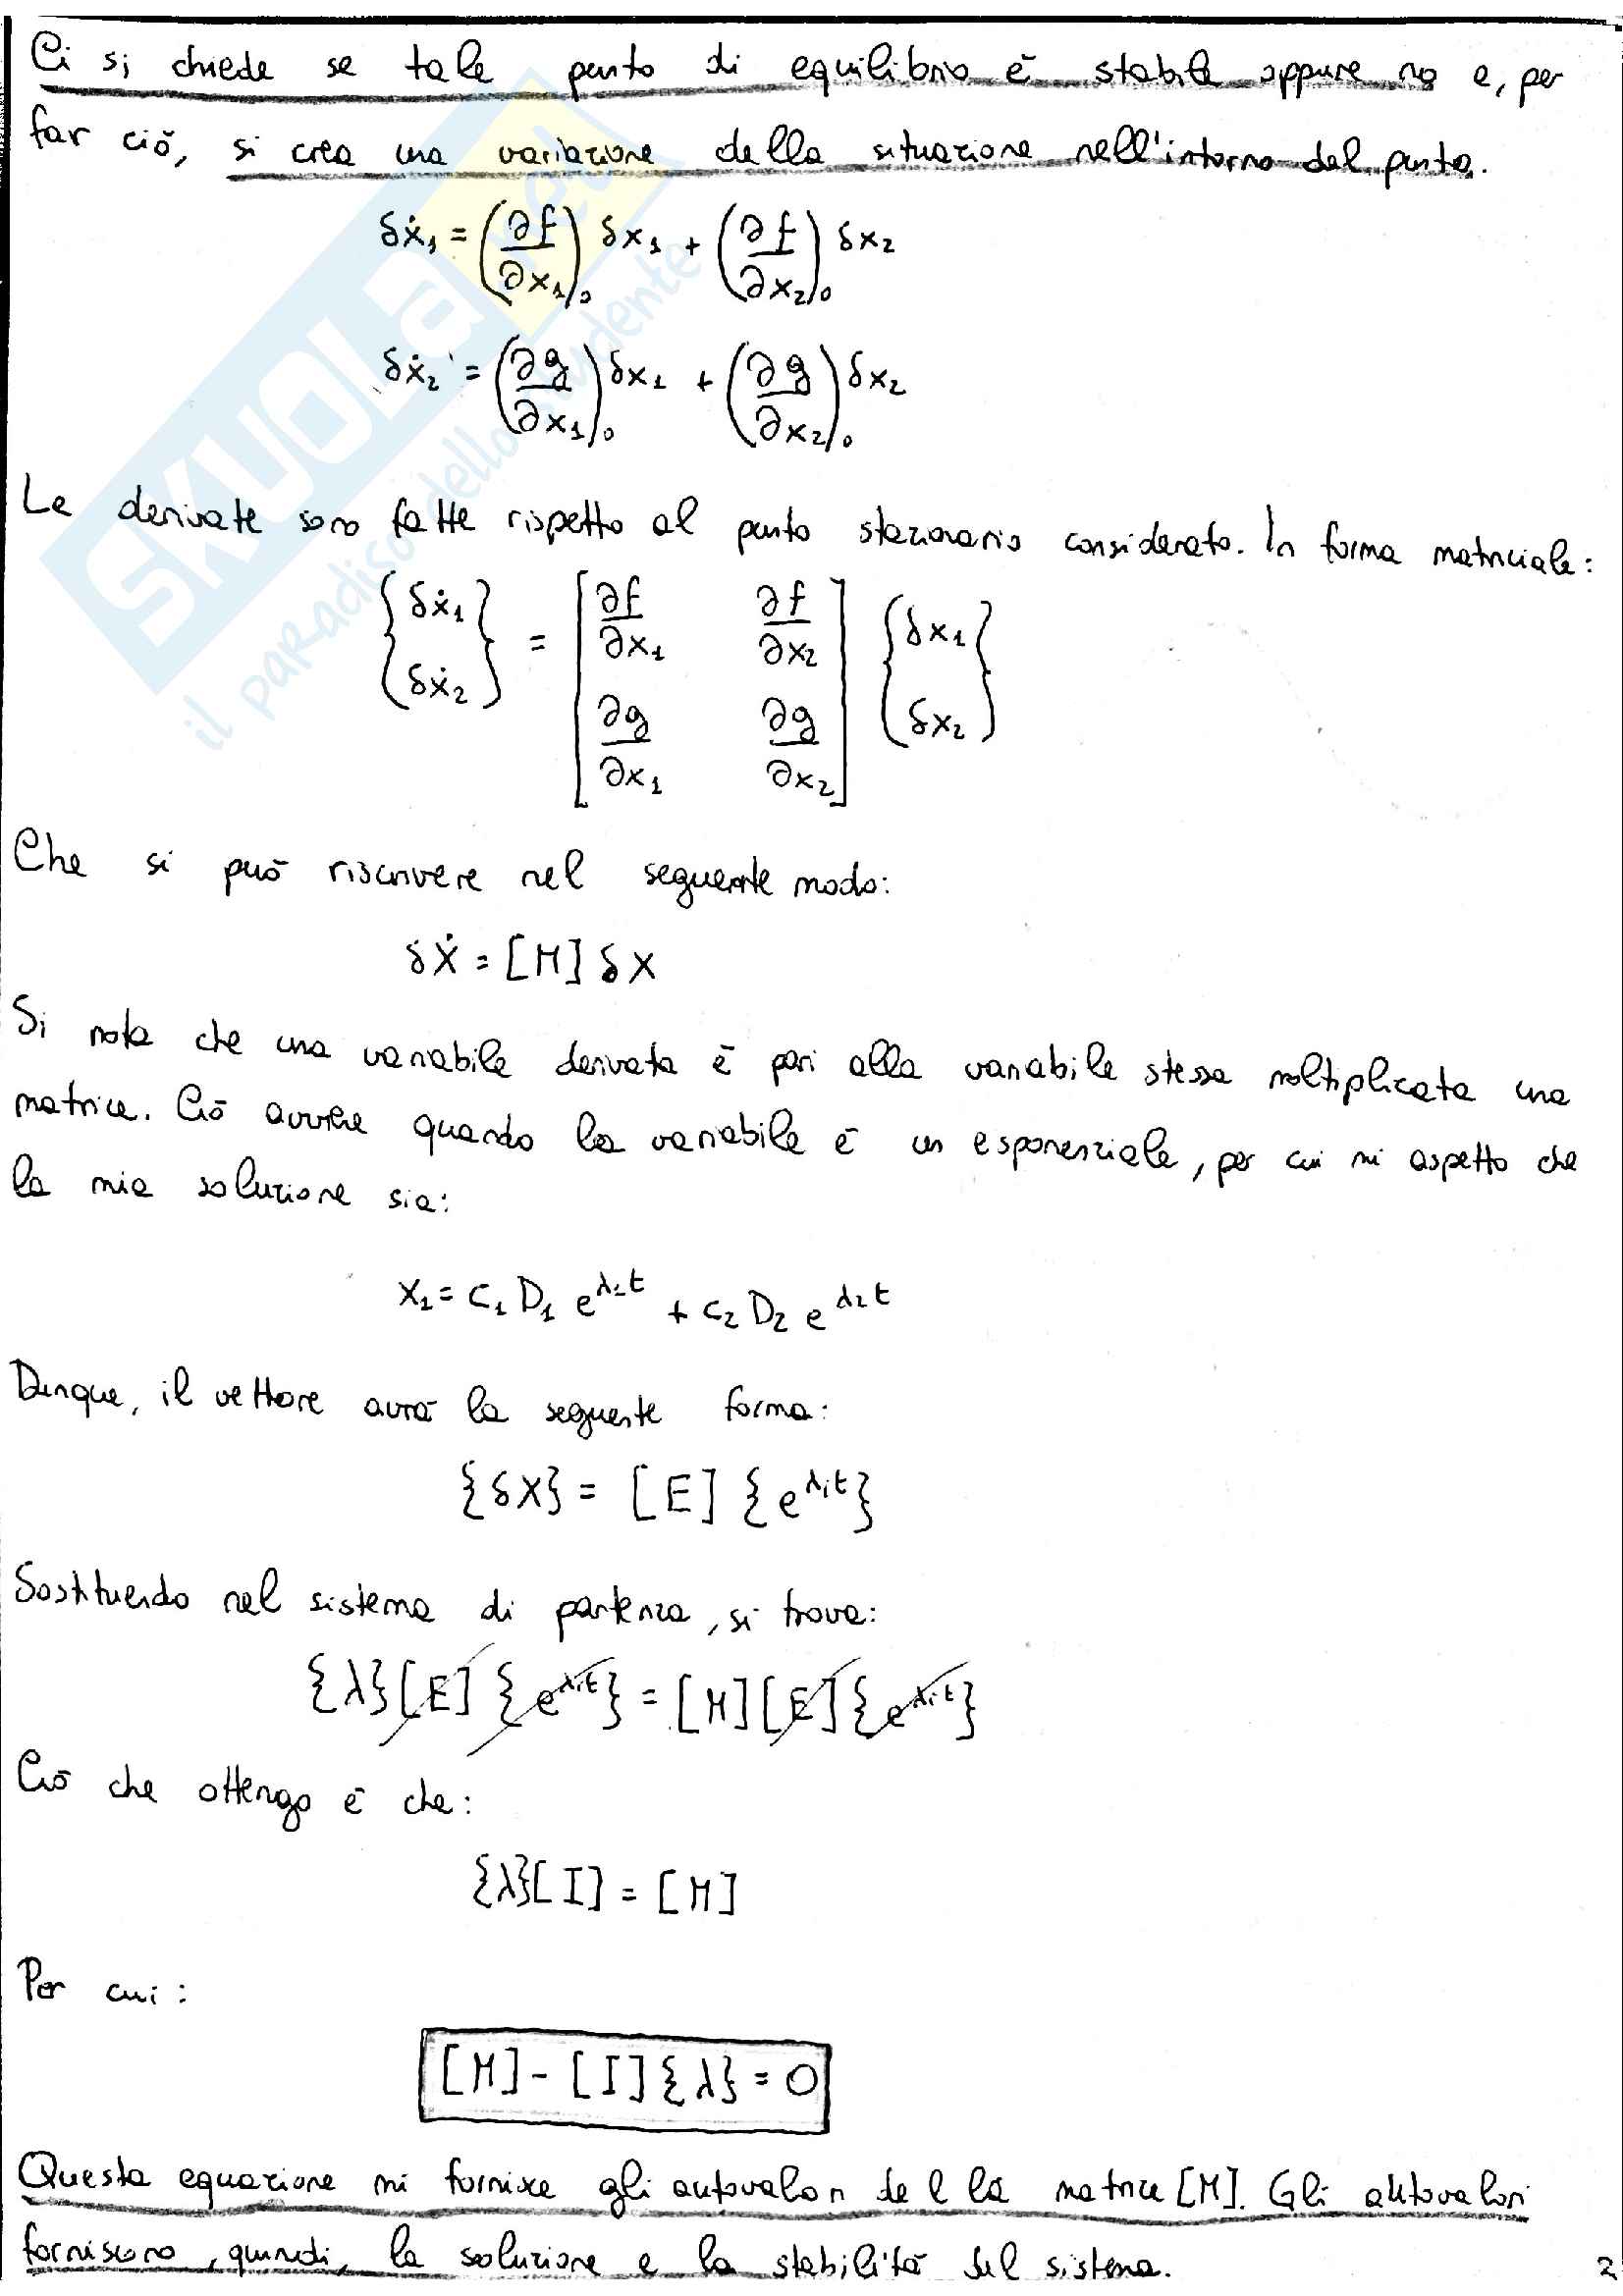 Ci si chiede se tale punto di equilibrio è stabile oppure no e, per
far ciò, si crea una variazione della situazione nell'intorno del punto.
δẋ₁ = (∂f/∂x₁)₀ δx₁ + (∂f/∂x₂)₀ δx₂
δẋ₂ = (∂g/∂x₁)₀ δx₁ + (∂g/∂x₂)₀ δx₂
Le derivate sono fatte rispetto al punto stazionario considerato. In forma matriciale:
{δẋ₁ δẋ₂} = [∂f/∂x₁ ∂f/∂x₂ ∂g/∂x₁ ∂g/∂x₂] {δx₁ δx₂}
Che si può riscrivere nel seguente modo:
δẊ = [M] δX
Si nota che una variabile derivata è pari alla variabile stessa moltiplicata una
matrice. Ciò avviene quando la variabile è un esponenziale, per cui mi aspetto che
la mia soluzione sia:
x₁ = c₁ D₁ e^λ₁t + c₂ D₂ e^λ₂t
Dunque, il vettore avrà la seguente forma:
{δX} = [E] {e^λᵢt}
Sostituendo nel sistema di partenza, si trova:
{λ}[E]{e^λᵢt} = [M][E]{e^λᵢt}
Ciò che ottengo è che:
{λ}[I] = [M]
Per cui:
[M] - [I]{λ} = 0
Questa equazione mi fornisce gli autovalori della matrice [M]. Gli autovalori
forniscono, quindi, la soluzione e la stabilità del sistema.
2
SKUOLA.net
il paradiso dello studente